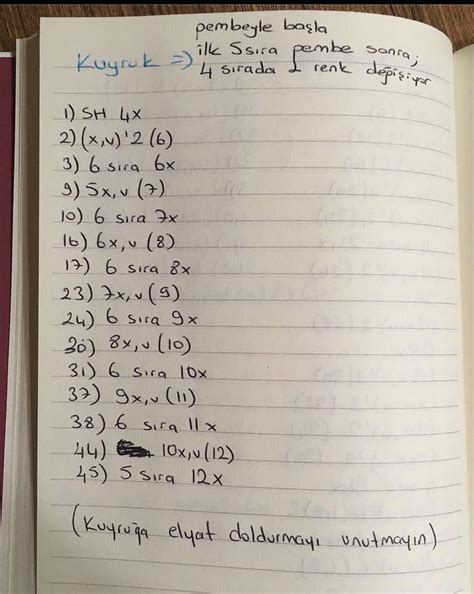 pembeyle başla
ilk 5 sıra pembe sonra,
Kuyruk => 4 sırada 1 renk değişiyor
1) SH 4x
2) (x,v)'2 (6)
3) 6 sıra 6x
9) 5x,v (7)
10) 6 sıra 7x
16) 6x,v (8)
17) 6 sıra 8x
23) 7x,v (9)
24) 6 sıra 9x
30) 8x,v (10)
31) 6 sıra 10x
37) 9x,v (11)
38) 6 sıra 11x
44) 10x,v (12)
45) 5 sıra 12x
(Kuyruğa elyat doldurmayı unutmayın)